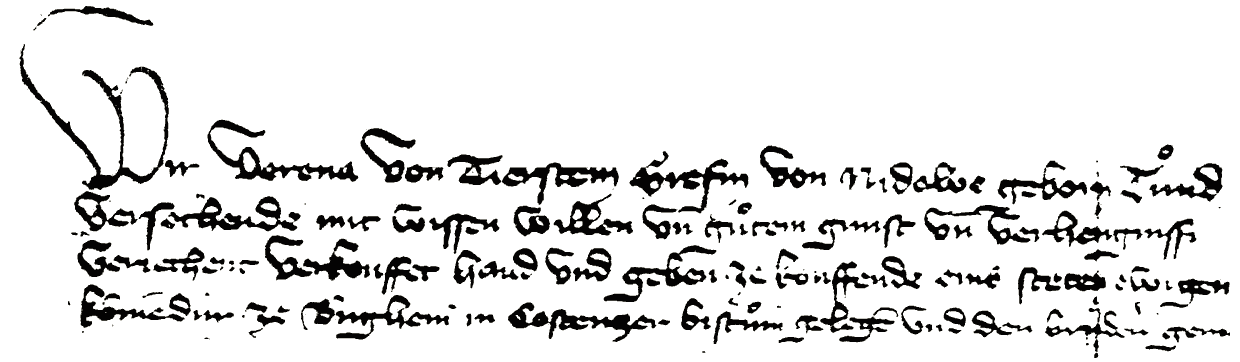 Wir Verena von Tierstein Gresin von Nidowe geborn Tund
Versechende mit wissen willen vn̄ gůtem gunst vn̄ verhengnissi
Veriechent verkouffet hand vnd geben ze kouffende eins steten ewigen
komēdur ze Bughein in Costentzer bistům gelegē vnd den brůdern gem